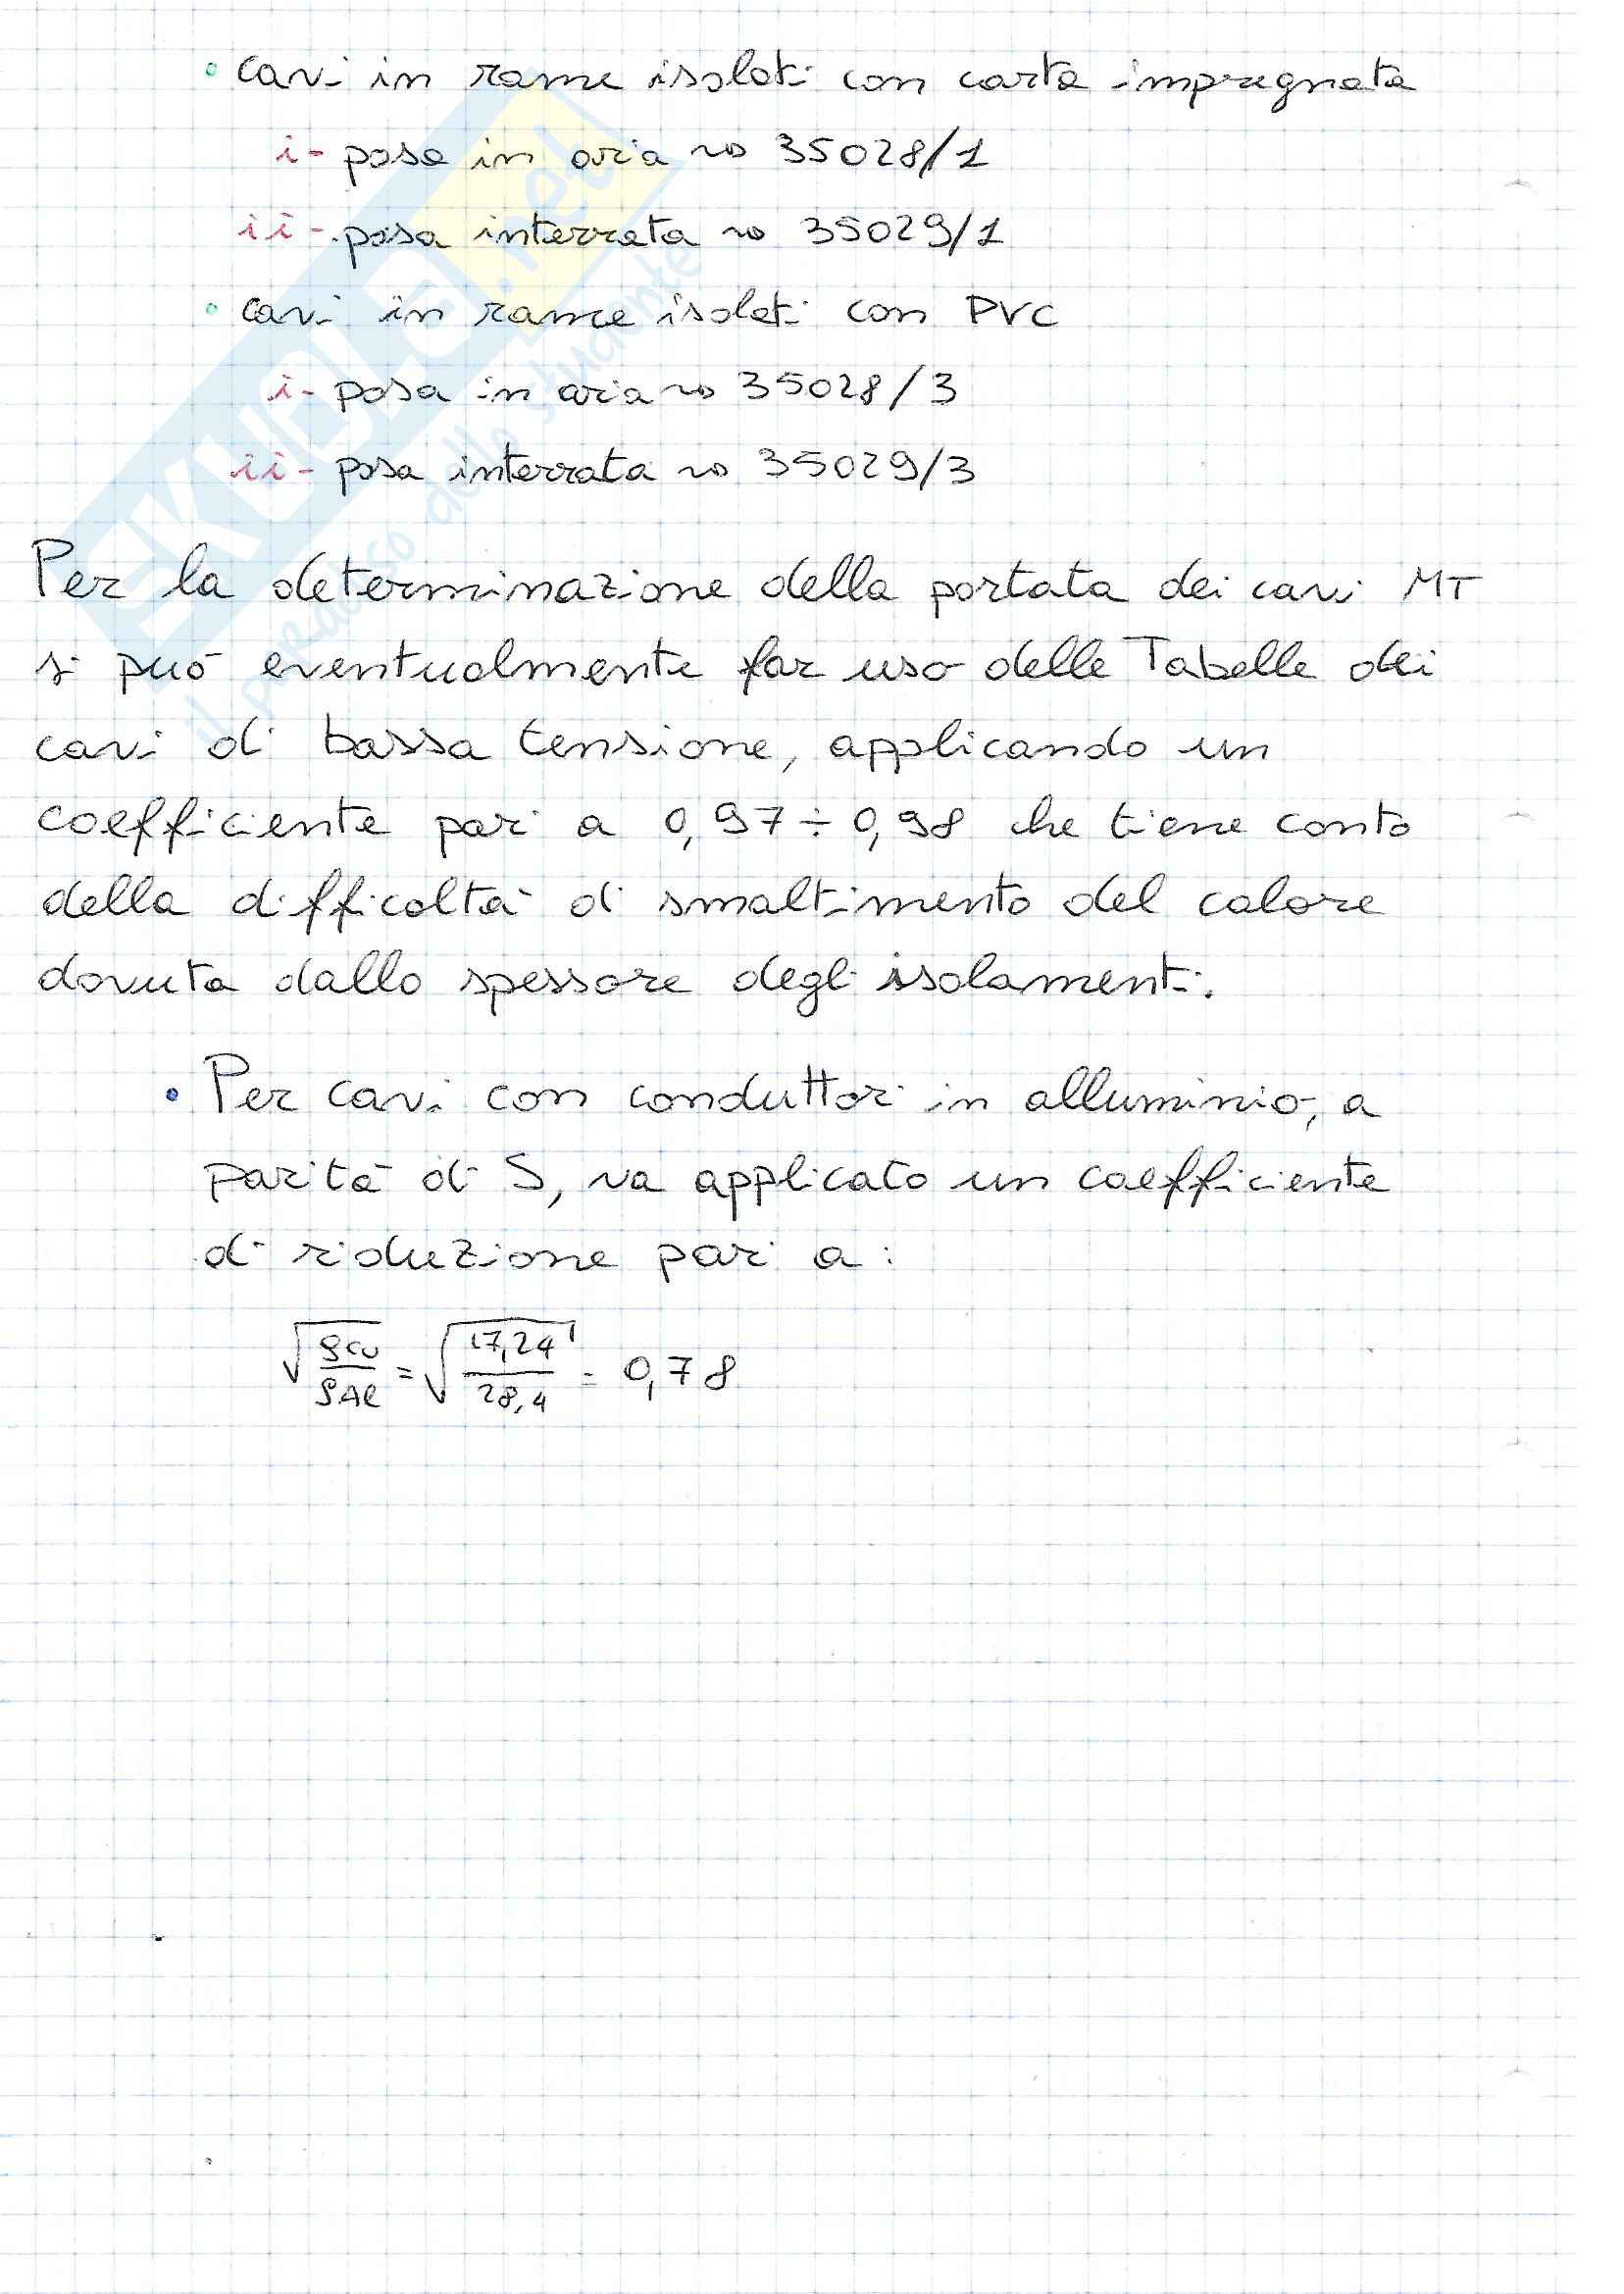 • cavi in rame isolati con carta impregnata
i- posa in aria ~> 35028/1
ii- posa interrata ~> 35029/1
• cavi in rame isolati con PVC
i- posa in aria ~> 35028/3
ii- posa interrata ~> 35029/3
Per la determinazione della portata dei cavi MT
si può eventualmente far uso delle Tabelle dei
cavi di bassa tensione, applicando un
coefficiente pari a 0,97÷0,98 che tiene conto
della difficoltà di smaltimento del calore
dovuta dallo spessore degli isolamenti.
• Per cavi con conduttori in alluminio, a
parità di S, va applicato un coefficiente
di riduzione pari a:
√(ρCU/ρAl) = √(17,24/28,4) = 0,78
SKUOLA.net
il paradiso dello studente